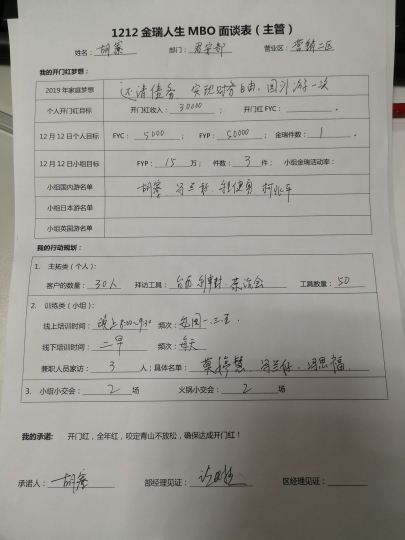 1212 金瑞人生 MBO 面谈表（主管）
姓名： 部门： 营业区：营销二区
我的开门红梦想：
2019 年家庭梦想 还清债务 实现财务自由，国外游一次
个人开门红目标 开门红收入：30000 开门红 FYC：
12 月 12 日个人目标 FYC：5000 FYP：50000 金瑞件数：1
12 月 12 日小组目标 FYP：15 万； 件数：3 件； 小组金瑞活动率：
小组国内游名单
小组日本游名单
小组英国游名单
我的行动规划：
1. 主拓类（个人）：
客户的数量：30人 拜访工具： 工具数量：50
2. 训练类（小组）：
线上培训时间：晚上8:00-9:30 频次：每周一.三.五
线下培训时间：二早 频次：每天
兼职人员家访：3 人；具体名单：
3. 小组小交会：2 场 火锅小交会：2 场
我的承诺： 开门红，全年红，咬定青山不放松，确保达成开门红！
承诺人： 部经理见证： 区经理见证：